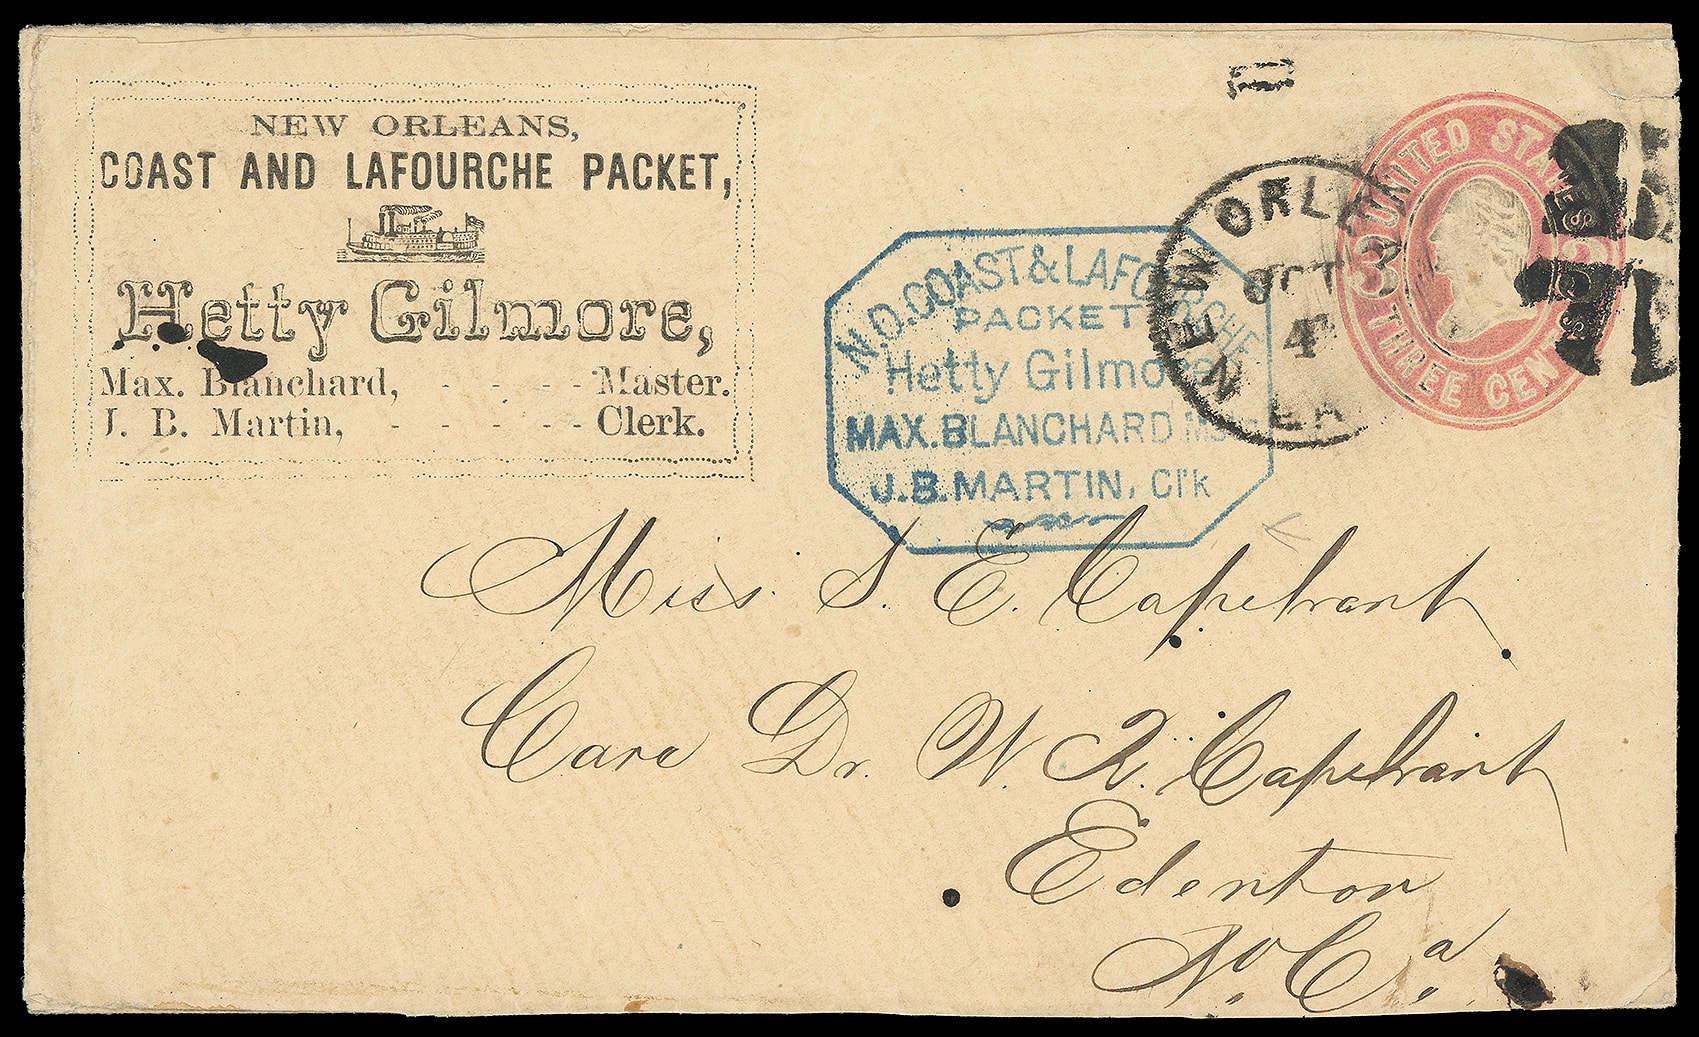 NEW ORLEANS,
COAST AND LAFOURCHE PACKET,
Hetty Gilmore,
Max. Blanchard, - - - - Master.
J. B. Martin, - - - - - Clerk.
N.O. COAST & LAFOURCHE
PACKET
Hetty Gilmore
MAX. BLANCHARD
J.B. MARTIN, Cl'k
NEW ORLEANS
OCT
4
LA
UNITED STATES
3 3
THREE CENTS
Miss. S. E. Capehart
Care Dr. W. R. Capehart
Edenton
No. Ca.